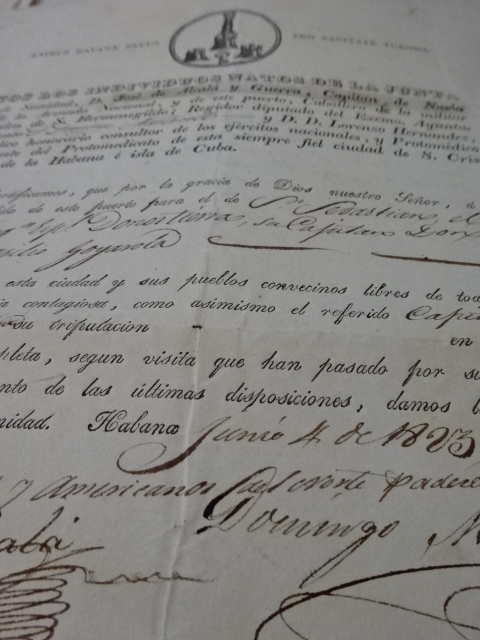 TOS LOS INDIVIDUOS NATOS DE LA JUNTA
de Sanidad, D. José de Alcalá y Guerra, Capitan de Navío
de la Armada Nacional, y de este puerto, Caballero de la militar
S. Hermenegildo; Regidor diputado del Excmo. Ayunta
y D. D. Lorenzo Hernandez,
dico honorario consultor de los ejércitos nacionales, y Protomédico
ente del Protomedicato de esta siempre fiel ciudad de S. Cris
de la Habana é isla de Cuba.
ertificamos, que por la gracia de Dios nuestro Señor, á
da de este puerto para el de Sn. Sebastian, el
su Capitan Don
Goyarrola
esta ciudad y sus pueblos convecinos libres de tod
contagiosa, como asimismo el referido Capi
su tripulacion en
pleta, segun visita que han pasado por su
nto de las últimas disposiciones, damos l
nidad. Habana Junio 4 de 1823
y Americanos del norte padece
Domingo